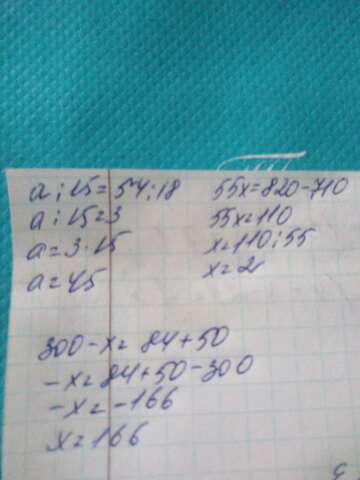 a : 15 = 54 : 18
a : 15 = 3
a = 3 · 15
a = 45
55x = 820 - 710
55x = 110
x = 110 : 55
x = 2
300 - x = 84 + 50
-x = 84 + 50 - 300
-x = -166
x = 166